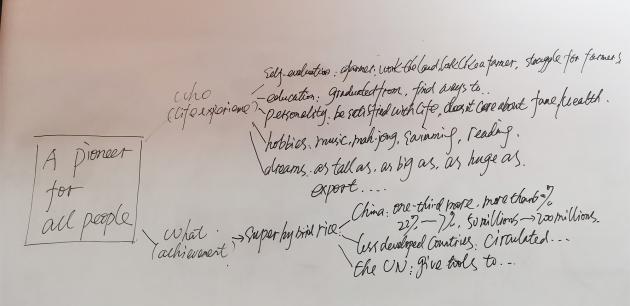 A pioneer
for
all people
who
(life experience)
self-evaluation: a farmer, work the land like a farmer, struggle for farmers
education: graduated from, find ways to..
personality: be satisfied with life, doesn't care about fame/wealth.
hobbies: music, mah-jong, swimming, reading.
dreams: as tall as, as big as, as huge as.
export....
what
(achievement)
super hybrid rice
China: one-third more, more than 60%
22% — 7%, 50 millions → 200 millions.
less developed countries: circulated...
the UN: give tools to...